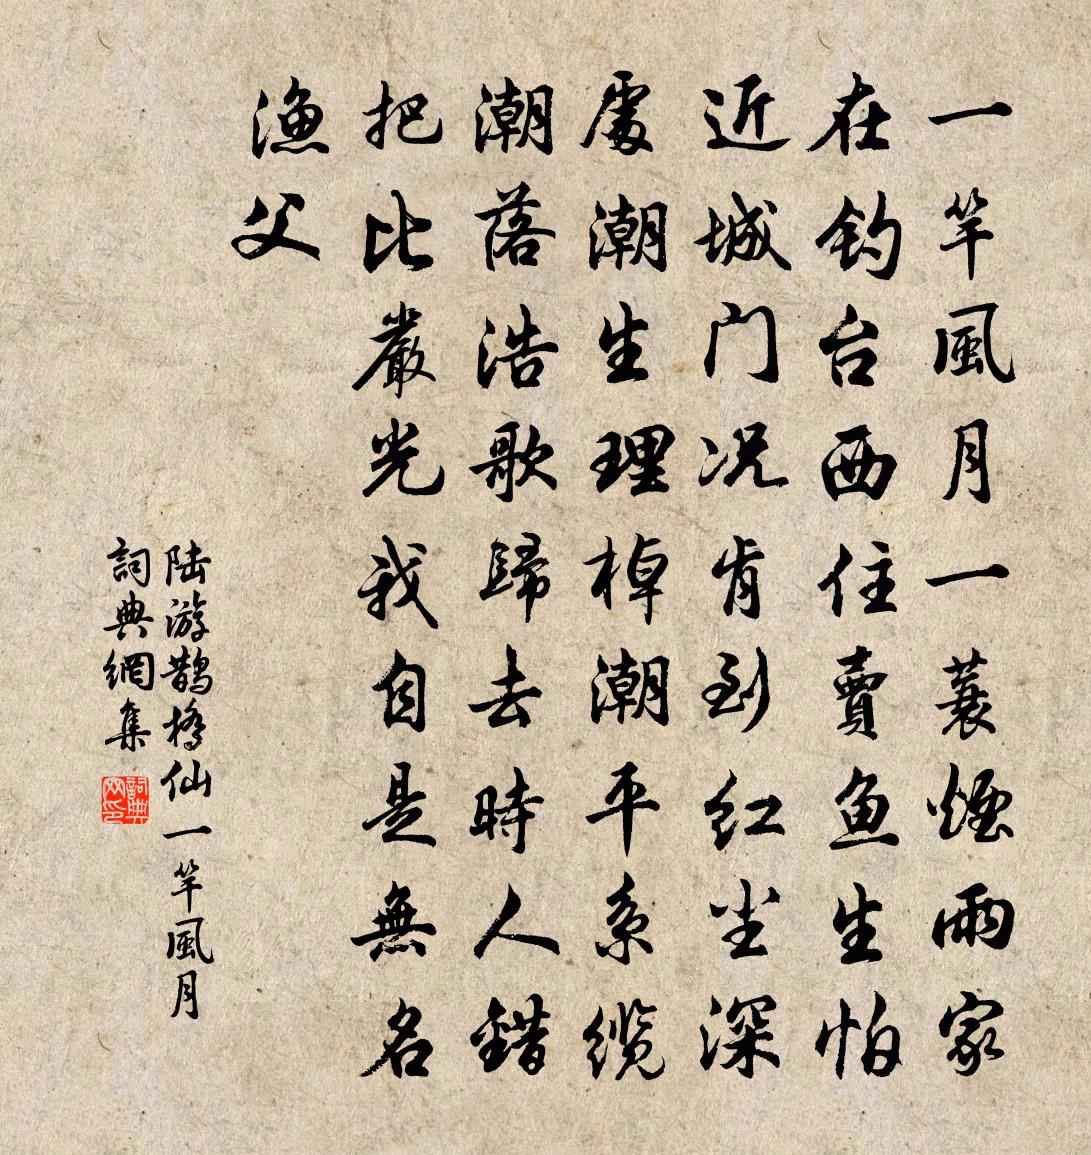 一竿風月一蓑煙雨家
在钓台西住賣魚生怕
近城门况肯到红尘深
處潮生理棹潮平系缆
潮落浩歌歸去時人錯
把比嚴光我自是無名
渔父
陆游鹊橋仙一竿風月
詞典網集
詞典
网印